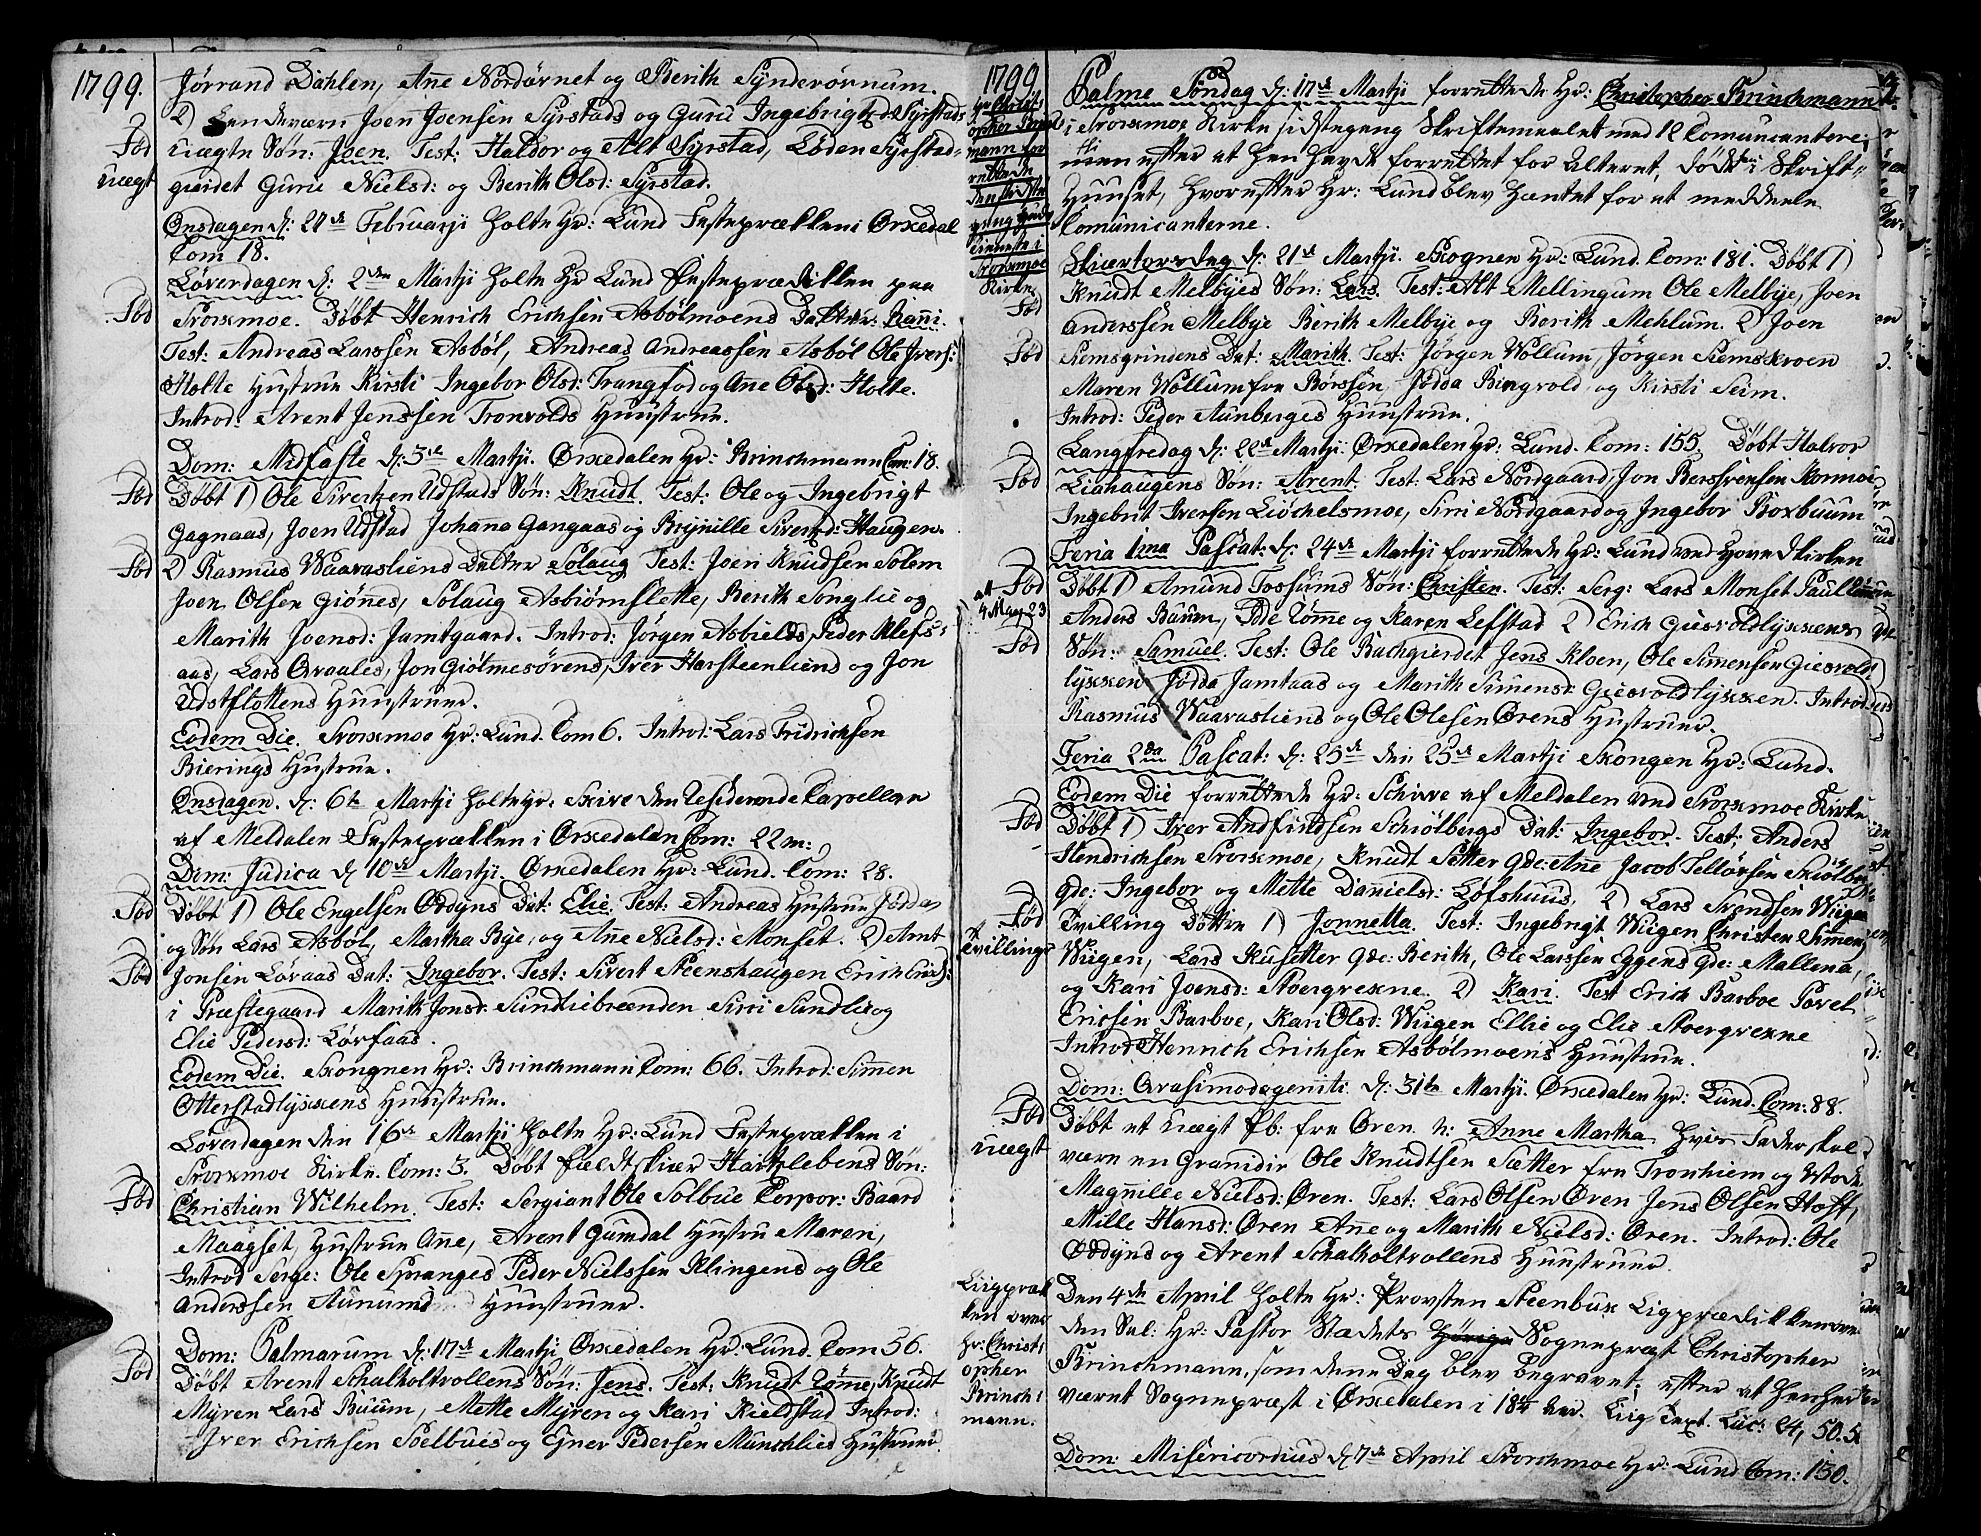 1799.
Jörrand Dahlen, Añe Nordörnet og Berith Synderörnum.
2) Landeværn Joen Joensen Syrstads og Guru Ingebrigtsd: Syrstads
Fød
uægt
uægte Søn: Joen. Test: Haldor og Alt Syrstad, Loden Syrstad-
giærdet Guru Nielsd: og Berith Olsd: Syrstad.
Onsdagen d: 27de Februarji holte Hr: Lund Fastepræken i Orkedal
Com 18.
Löverdagen d: 2den Martji holte Hr Lund Fasteprædiken paa
Fød
Svorkmoe. Döbt Henrich Erichsen Asbölmoens Datter: Rañi.
Test: Andreas Larssen Asböl, Andreas Andreassen Asböl Ole Ivers:
Holte Hustrue Kirsti Ingebor Olsd: Trangfod og Ane Olsd: Holte.
Introd: Arent Jenssen Tronvolds Huustrue.
Dom: Midfaste d: 3de Martji. Orkedalen Hr: Brinchmann Com: 18.
Fød
Döbt 1) Ole Sivertsen Udstads Søn: Knudt. Test: Ole og Ingebrigt
Gagnaas, Joen Udstad Johana Gangaas og Brynille Sivertsd: Haugen.
Fød
2) Rasmus Waavasliens Datter Solaug Test: Joen Knudsen Solem
Joen Olsen Giönnes, Solaug Asbiörnslette, Berith Songlie og
Marith Joensd: Jamtgaard. Introd: Jörgen Asbields, Peder Klefs-
aas, Lars Qvaales, Jon Giölmesörens, Iver Harsteenlund og Jon
Udstflottens Huustruer.
Eodem Die. Svorkmoe Hr: Lund. Com 6. Introd: Lars Fridrichsen
Bierings Hustrue.
Onsdagen. d: 6te Martji holte Hr: Skive den Residerende Capellan
af Meldalen Fastepræken i Orkedalen Com: 22 m:
Dom: Judica d 10de Martji. Orkedalen Hr: Lund. Com: 28.
Fød
Döbt 1) Ole Engelsen Oddyns Dat: Elie. Test: Andreas Hustrue Jödda
og Søn Lars Asböl, Martha Bye, og Añe Nielsd: Monset. 2) Arnt
Fød
Jonsen Löraas Dat: Ingebor. Test: Sivert Steenshaugen Erich Erichs:
i Præstegaard Marith Jonsd: Sundliebrænden Siri Sundlie og
Elie Pedersd: Lörfaas.
Eodem Die. Skongnen Hr: Brinchmann Com: 66. Introd: Simen
Otterstadlykkens Huustrue.
Löverdagen den 16de Martji holte Hr: Lund Fastepræken i
Svorkmoe Kirke. Com: 3. Döbt Fældtskiær Hartzlebens Søn:
Fød
Christian Wilhelm. Test: Sergiant Ole Solbue Corpor: Baard
Maagset, Hustrue Ane, Arent Gumdal Hustru Maren,
Introd Serge: Ole Spranges Peder Nielssen Klingens og Ole
Anderssen Aunumd Huustruer.
Dom: Palmarum d: 17de Martji Orkedalen Hr: Lund. Com 56.
Fød
Döbt Arent Schalholtvollens Søn: Jens. Test: Knudt Römme, Knudt
Myren Lars Buum, Mette Myren og Kari Kieldstad Introd:
Iver Erichsen Solbues og Egner Pedersen Munchlied Hustruer
1799.
Hr: Christopher Brinchmann forrettede den sidste gang Guds tieneste i Svorkmoe Kirke.
Palme Söndag d: 17de Martji forrettede Hr: Christopher Brinchmann
i Svorkmoe Kirke sidste gang Skriftemaalet med 12 Comunicantere;
men efter at han havde forrettet for Alteret, döde i Skrift-
Huuset, hvorefter Hr: Lund blev hæntet for at meddeele
Comunicanterne.
Skiertorsdag d: 21de Martji. Skognen Hr: Lund. Com: 181. Döbt 1)
Fød
Knudt Melbyes Søn: Lars. Test: Alt Mellingum Ole Melbye, Joen
Anderssen Melbye Berith Melbye og Berith Mehlum. 2) Joen
Fød
Siemsgrindens Dat: Marith. Test: Jörgen Wollum, Jörgen Siemskroen
Maren Wollum fra Börssen, Jödda Ringvold, og Kirsti Seim.
Introd: Peder Aunberges Huustrue.
Langfredag d: 22de Martji. Orkedalen Hr: Lund. Com: 155. Döbt Halvor
Fød
Liahaugens Søn: Arent. Test: Lars Nordgaard, Jon Berssvensen Kormoe
Ingebrit Iversen Liöchelsmoe, Siri Nordgaard og Ingebor Boxbuum
Feria 1ma Pascat: d: 24de Martji forrettede Hr: Lund ved Hovedkirken
Fød
att
4 Mag 23
Döbt 1) Amund Fossums Søn: Christen. Test: Serg: Lars Monset Paul
Anders Buum, Ode Römme og Karen Lefstad 2) Erich Giesvoldlykkens
Fød
Søn: Samuel. Test: Ole Bachgierdet Jens Kloen, Ole Simensen Giesvold-
lykken Jödda Jamtaas og Marith Simensd: Giesvoldlykken. Introd:
Rasmus Waavasliens og Ole Olesen Örens Hustruer.
Feria 2da Pascat: d: 25de den 25de Martji Skongen Hr: Lund.
Eodem Die forrettede Hr: Schive af Meldalen ved Svorkmoe Kirke.
Fød
Döbt 1) Iver Andfindsen Schiölbergs Dat: Ingebor. Test: Anders
Hendrichsen Svorkmoe, Knudt Setter Qde: Añe Jacob Tellevsen Skiölberg
Qde: Ingebor og Mette Danielsd: Löfshuus. 2) Lars Svendsen Wiigen
Fød
Tvillinge
Tvilling Döttre 1) Jonnetta. Test: Ingebrigt Wiigen Christen Simens:
Wiigen, Lars Kusetter Qde: Berith, Ole Larssen Eggens Qde: Mallena,
og Kari Joensd: Stoergrekne. 2) Kari. Test Erich Barboe Povel
Ericsen Barboe, Kari Olsd: Wiigen Ellie og Elie Stoergrekne
Introd Henrich Erichsen Asbölmoens Huustrue.
Dom: Qvasimodogeniti d: 31te Martji. Orkedalen Hr: Lund. Com: 88.
Fød
uægt
Döbt et Uægt Pb: fra Ören n: Anne Martha hvis Fader skal
være en Granidir Ole Knudtsen Sætter fra Tronhiem og Mode
Magnilde Nielsd: Ören. Test: Lars Olsen Ören Jens Olsen Hoff,
Mille Hansd: Ören Ane og Marith Nielsd: Ören. Introd: Ole
Oddyns og Arent Schalholtvollens Huustruer.
Liigpræken over Hr: Christopher Brinchmann.
Den 4de April holte Hr: Provsten Steenbuk Ligprædikken over
den Sal: Hr: Pastor Stædets Sognepræst Christopher
Brinchmann, som denne Dag blev begravet; efter at han har
været Sognepræst i Orkedalen i 18 aar. Liig Text. Luc: 24, 50. 5
Dom: Misericordius d 7de April Svorchmoe Hr: Lund Com: 130.